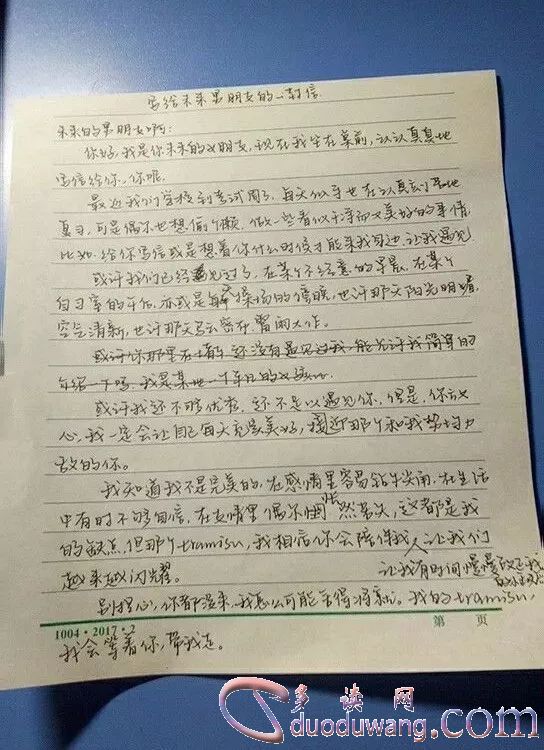 写给未来男朋友的一封信
未来的男朋友啊:
你好,我是你未来的女朋友,现在我坐在桌前,认认真真地
写信给你,你呢
最近我们学校到考试周了,每天似乎也在认真
复习,可是偶尔也想偷个懒,做一些看似干净而又美好的事情,
比如给你写信或是想着你什么时候才能来我身边,让我遇见
或许我们已经遇见过了,在某个不经意的早晨,在某个
自习室的午后,亦或是操场的傍晚,也许那天阳光明媚,
空气清新,也许那天乌云密布,雷雨大作。
或许你那里还没有遇见过我,能允许我简单的
介绍一下吗,我是某地一个
或许我还不够优秀,还不足以遇见你,但是,你放
心,我一定会让自己每天充实美好,接近那个和我势均力
敌的你。
我知道我不是完美的,在感情里容易钻牛角尖,在生活
中有时不够自信,在友情里偶尔患得患失,这都是我
的缺点,但那个tramisu,我相信你会陪伴我,让我们
越来越闪耀。
让我有时间慢慢改正我
别担心,你都没来,我怎么可能舍得将就。我的tramisu,
1004·2017·2
第 页
我会等着你,带我走。
多读网
duoduwang.com